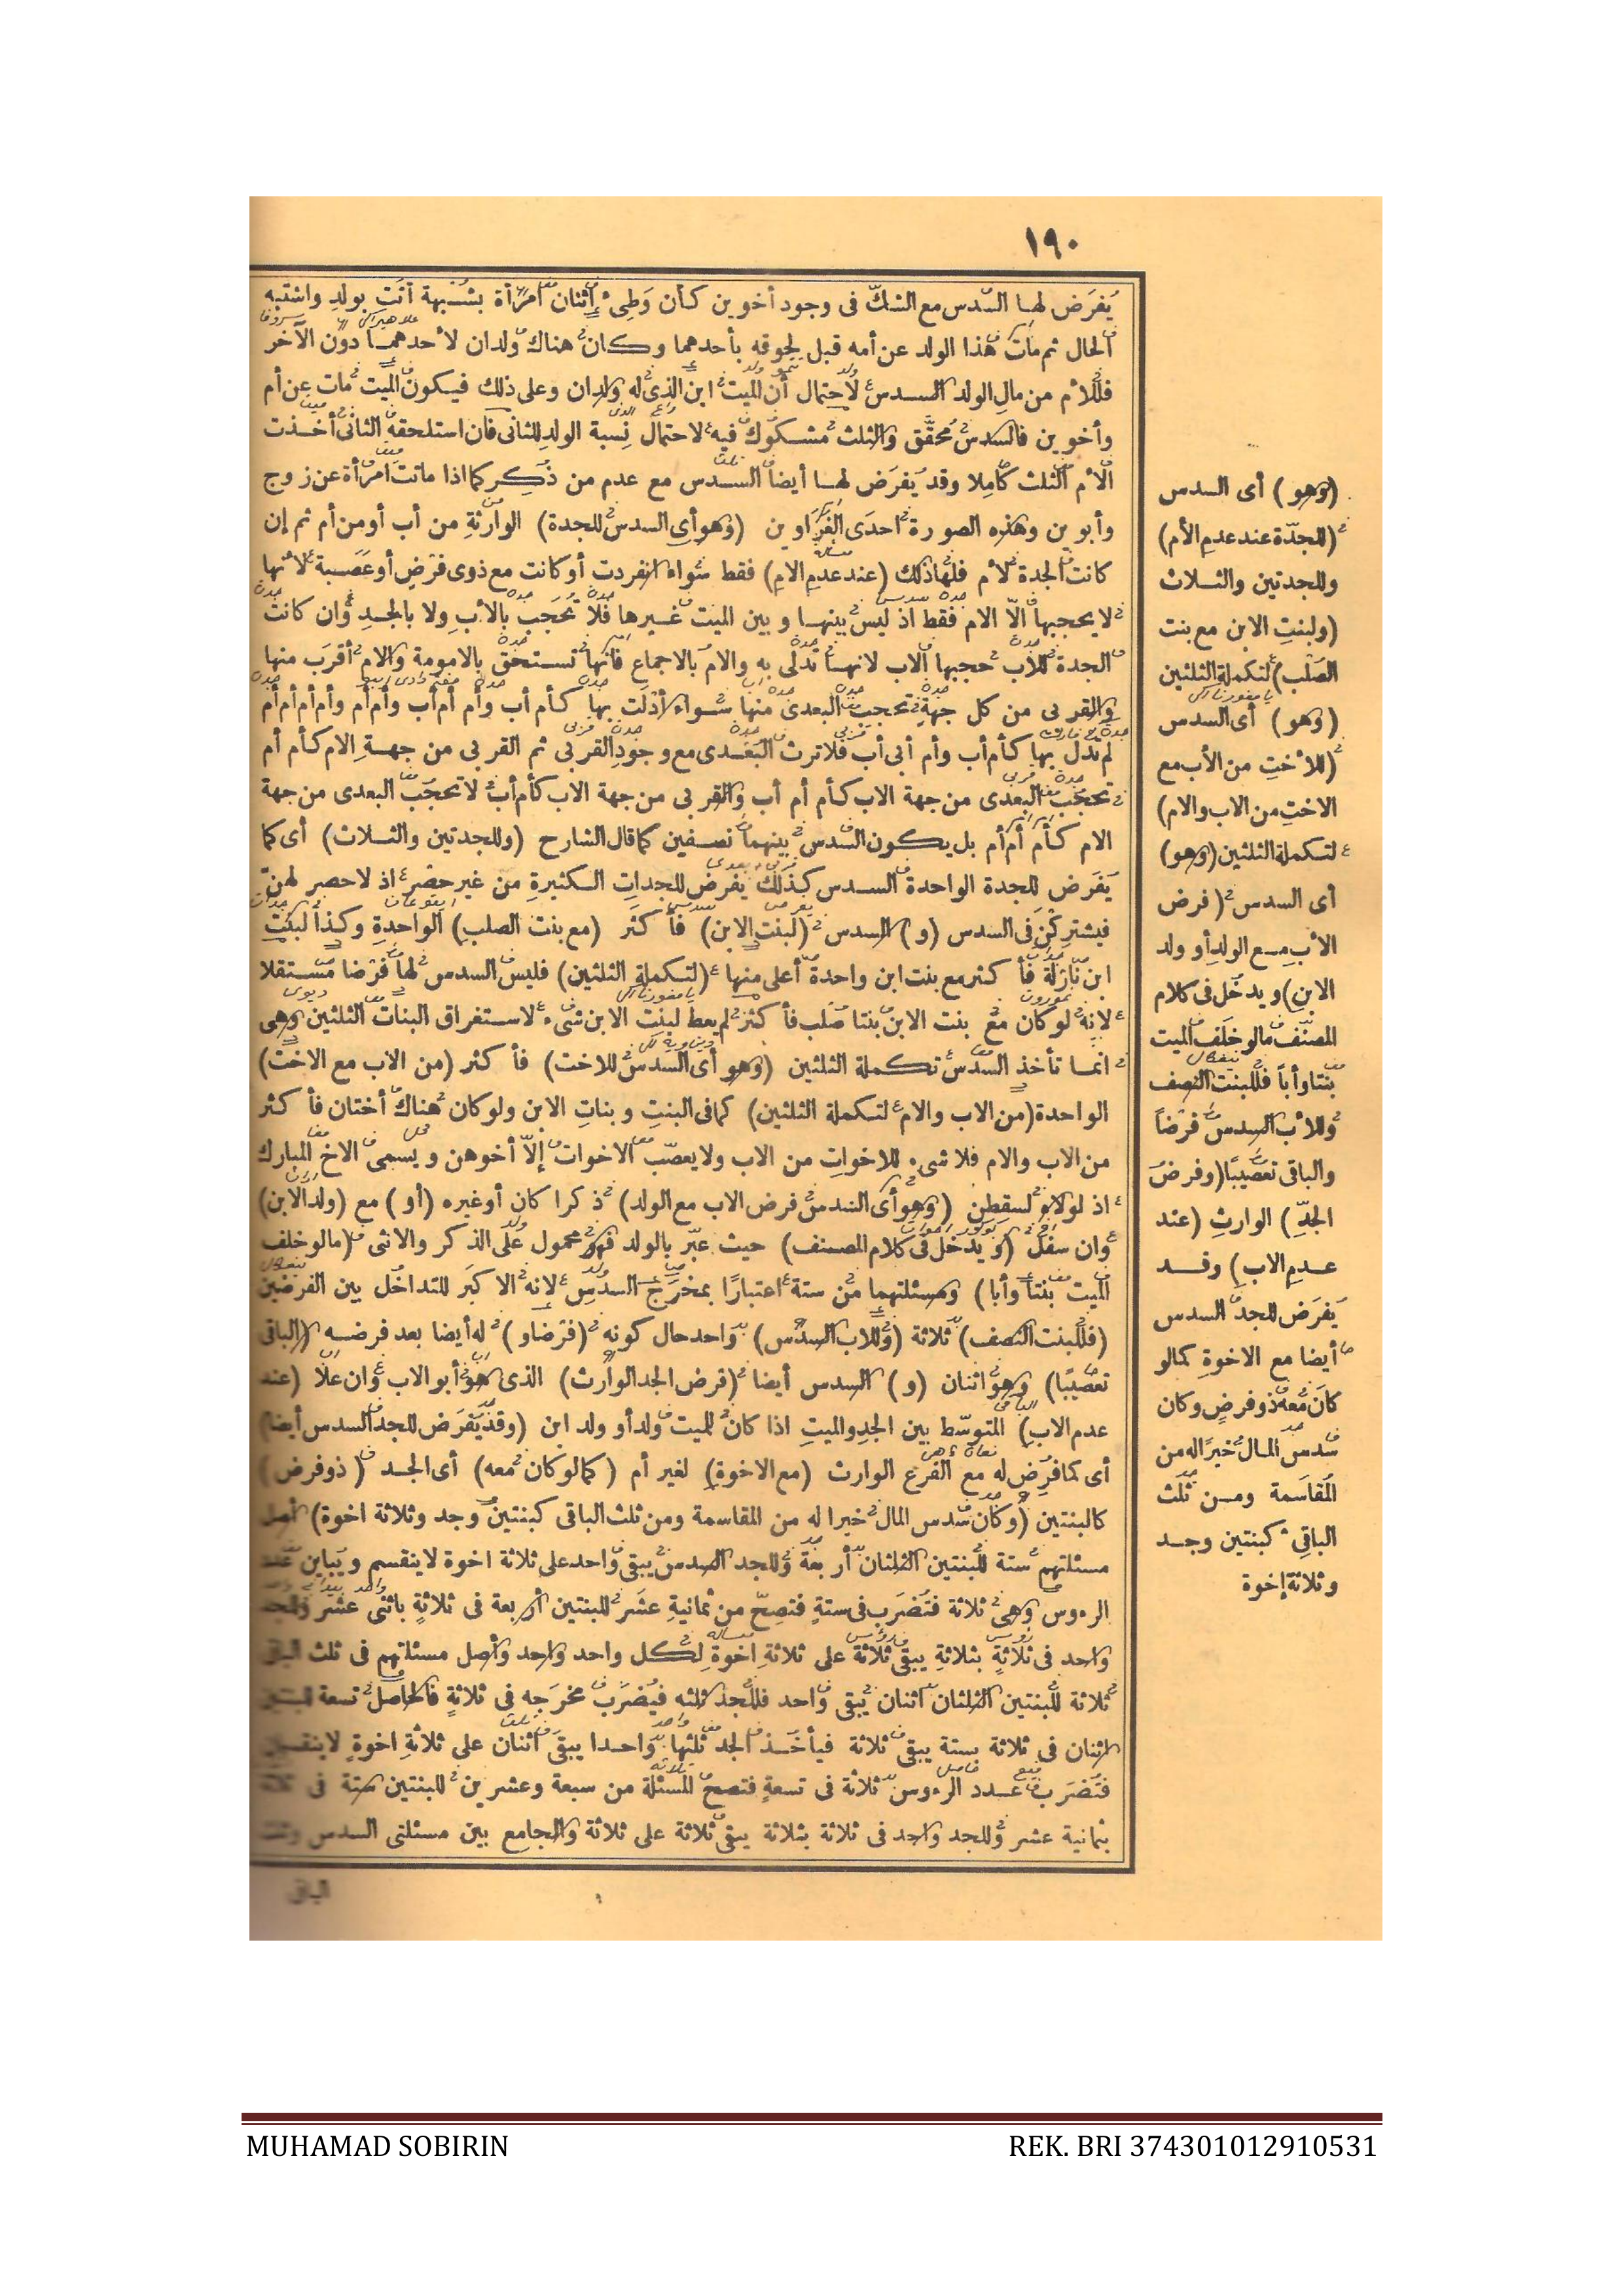 ١٩٠
يُفرَض لها السدس مع الشك فى وجود أخوين كأن وَطِئ اثنان امرأة بشبهة أتت بولد واشتبه
الحال ثم مات هذا الولد عن أمه قبل لحوقه بأحدهما وكان هناك ولدان لأحدهما دون الآخر
فللأم من مال الولد السدس لاحتمال أن الميت ابن الذى له ولدان وعلى ذلك فيكون الميت مات عن أم
وأخوين فالسدس محقق والثلث مشكوك فيه لاحتمال نسبة الولد للثانى فان استلحقه الثانى أخذت
الأم الثلث كاملا وقد يُفرَض لها أيضا السدس مع عدم من ذُكِر كما اذا ماتت امرأة عن زوج
وأبوين وهذه الصورة احدى الغراوين (وهو أى السدس للجدة) الوارثة من أب أو من أم ثم إن
كانت الجدة لأم فلها ذلك (عند عدم الام) فقط سواء انفردت أو كانت مع ذوى فرض أو عَصَبة لأنها
لا يحجبها الّا الام فقط اذ ليس بينها وبين الميت غيرها فلا تُحجَب بالأب ولا بالجد وان كانت
الجدة للأب حجبها الاب لانها تدلى به والام بالاجماع فانها تستحق بالامومة والام أقرب منها
والقربى من كل جهة تحجب البعدى منها سواء أدْلَت بها كأم أب وأم أم أب وأم أم وأم أم أم أم
لم تدل بها كأم أب وأم أبى أب فلا ترث البعدى مع وجود القربى ثم القربى من جهة الام كأم أم
تحجب البعدى من جهة الاب كأم أم أب والقربى من جهة الاب كأم أب لا تحجب البعدى من جهة
الام كأم أم أم بل يكون السدس بينهما نصفين كما قال الشارح (وللجدتين والثلاث) أى كما
يُفرَض للجدة الواحدة السدس كذلك يفرض للجدات الكثيرة من غير حصر اذ لا حصر لهنّ
فيشتركن فى السدس (و) السدس (لبنت الابن) فأكثر (مع بنت الصلب) الواحدة وكذا لبنت
ابن نازلة فأكثر مع بنت ابن واحدة أعلى منها (لتكملة الثلثين) فليس السدس لها فرضا مستقلا
لانه لو كان مع بنت الابن بنتا صلب فأكثر لم يعط لبنت الابن شىء لاستغراق البنات الثلثين وهى
انما تأخذ السدس تكملة الثلثين (وهو أى السدس للاخت) فأكثر (من الاب مع الاخت)
الواحدة (من الاب والام لتكملة الثلثين) كما فى البنت وبنات الابن ولو كان هناك أختان فأكثر
من الاب والام فلا شىء للاخوات من الاب ولا يعصّب الاخوات إلّا أخوهن ويسمى الاخ المبارك
اذ لولاه لسقطن (وهو أى السدس فرض الاب مع الولد) ذكرا كان أو غيره (أو) مع (ولد الابن)
وان سفل (ويدخل فى كلام المصنف) حيث عبّر بالولد فهو محمول على الذكر والانثى (ما لو خلف
الميت بنتا وأبا) ومسئلتهما من ستة اعتبارًا بمخرج السدس لانه الاكبر للتداخل بين الفرضين
(فللبنت النصف) ثلاثة (وللاب السدس) واحد حال كونه (فرضا و) له أيضا بعد فرضه (الباقى
تعصيبًا) وهو اثنان (و) السدس أيضا (فرض الجد الوارث) الذى هو أبو الاب وان علا (عند
عدم الاب) المتوسّط بين الجد والميت اذا كان للميت ولد أو ولد ابن (وقد يُفرَض للجد السدس أيضا)
أى كما فُرِض له مع الفرع الوارث (مع الاخوة) لغير أم (كما لو كان معه) أى الجد (ذو فرض)
كالبنتين (وكان سدس المال خيرا له من المقاسمة ومن ثلث الباقى كبنتين وجد وثلاثة اخوة) أصل
مسئلتهم ستة للبنتين الثلثان أربعة وللجد السدس يبقى واحد على ثلاثة اخوة لا ينقسم ويباين عدد
الرءوس وهى ثلاثة فتُضرَب فى ستة فتصحّ من ثمانية عشر للبنتين أربعة فى ثلاثة باثنى عشر وللجد
واحد فى ثلاثة بثلاثة يبقى ثلاثة على ثلاثة اخوة لكل واحد واحد وأصل مسئلتهم فى ثلث الباقى
ثلاثة للبنتين الثلثان اثنان يبقى واحد فللجد ثلثه فيُضرَب مخرجه فى ثلاثة فالحاصل تسعة للبنتين
اثنان فى ثلاثة بستة يبقى ثلاثة فيأخذ الجد ثلثها واحدا يبقى اثنان على ثلاثة اخوة لا ينقسم
فتُضرَب عدد الرءوس ثلاثة فى تسعة فتصح المسئلة من سبعة وعشرين للبنتين ستة فى ثلاثة
بثمانية عشر وللجد واحد فى ثلاثة بثلاثة يبقى ثلاثة على ثلاثة والجامع بين مسئلتى السدس وثلث
الباقى
(وهو) أى السدس
(للجدّة عند عدم الأم)
وللجدتين والثلاث
(ولبنت الابن مع بنت
الصلب) لتكملة الثلثين
(وهو) أى السدس
(للأخت من الأب مع
الاخت من الاب والام)
لتكملة الثلثين (وهو)
أى السدس (فرض
الأب مع الولد أو ولد
الابن) ويدخل فى كلام
المصنّف ما لو خلَف الميت
بنتا وأبا فللبنت النصف
وللأب السدس فرضاً
والباقى تعصيبًا (وفرضُ
الجدّ) الوارث (عند
عدم الاب) وقد
يُفرَض للجد السدس
أيضا مع الاخوة كما لو
كان معه ذو فرض وكان
سدس المال خيرًا له من
المقاسمة ومن ثلث
الباقى كبنتين وجد
وثلاثة إخوة
MUHAMAD SOBIRIN
REK. BRI 374301012910531